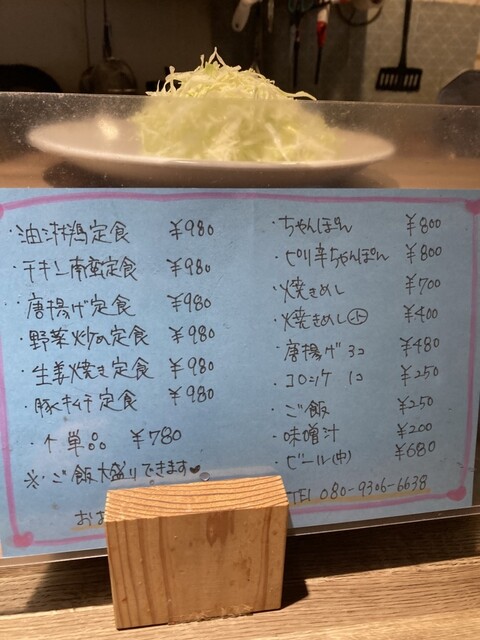 ・油淋鶏定食 ¥980
・チキン南蛮定食 ¥980
・唐揚げ定食 ¥980
・野菜炒め定食 ¥980
・生姜焼き定食 ¥980
・豚キムチ定食 ¥980
・↑単品 ¥780
※ご飯大盛りできます♥
・ちゃんぽん ¥800
・ピリ辛ちゃんぽん ¥800
・焼きめし ¥700
・焼きめし小 ¥400
・唐揚げ3コ ¥480
・コロッケ 1コ ¥250
・ご飯 ¥250
・味噌汁 ¥200
・ビール(中) ¥680
TEL 080-9306-6638